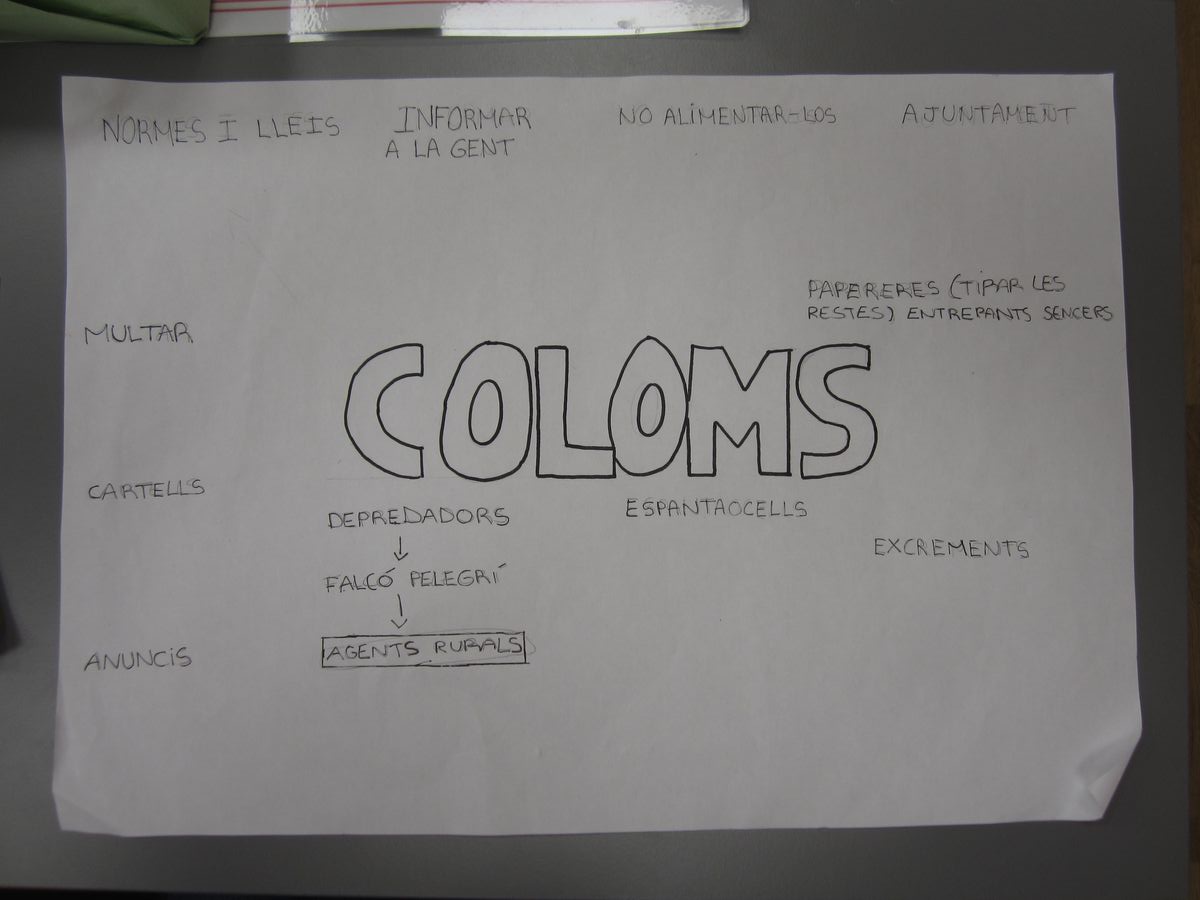 NORMES I LLEIS
INFORMAR
A LA GENT
NO ALIMENTAR-LOS
AJUNTAMENT
PAPERERES (TIPAR LES
RESTES) ENTREPANTS SENCERS
MULTAR
COLOMS
CARTELLS
DEPREDADORS
ESPANTAOCELLS
EXCREMENTS
FALCÓ PELEGRÍ
AGENTS RURALS
ANUNCIS